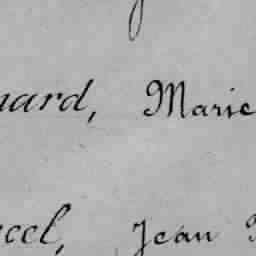 nard, Marie
cel, Jean